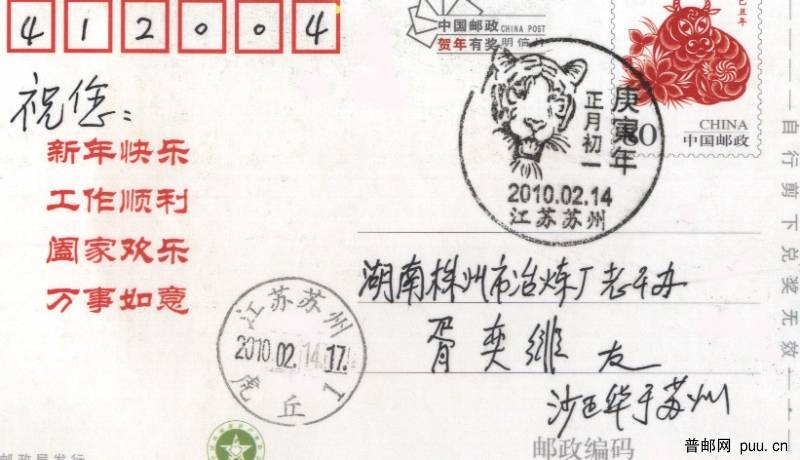 412004
中国邮政 CHINA POST
贺年有奖明信片
己丑年
80
CHINA
中国邮政
庚寅年
正月初一
2010.02.14
江苏苏州
祝您:
新年快乐
工作顺利
阖家欢乐
万事如意
湖南株州市冶炼厂老干办
胥奕 友
于苏州
江苏苏州
2010.02.14.17.
虎丘 1
邮政编码
邮政局发行
自行剪下兑奖无效
普邮网 puu.cn